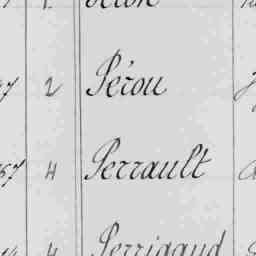 2 Pérou
57 4 Perrault
4 Perrigaud